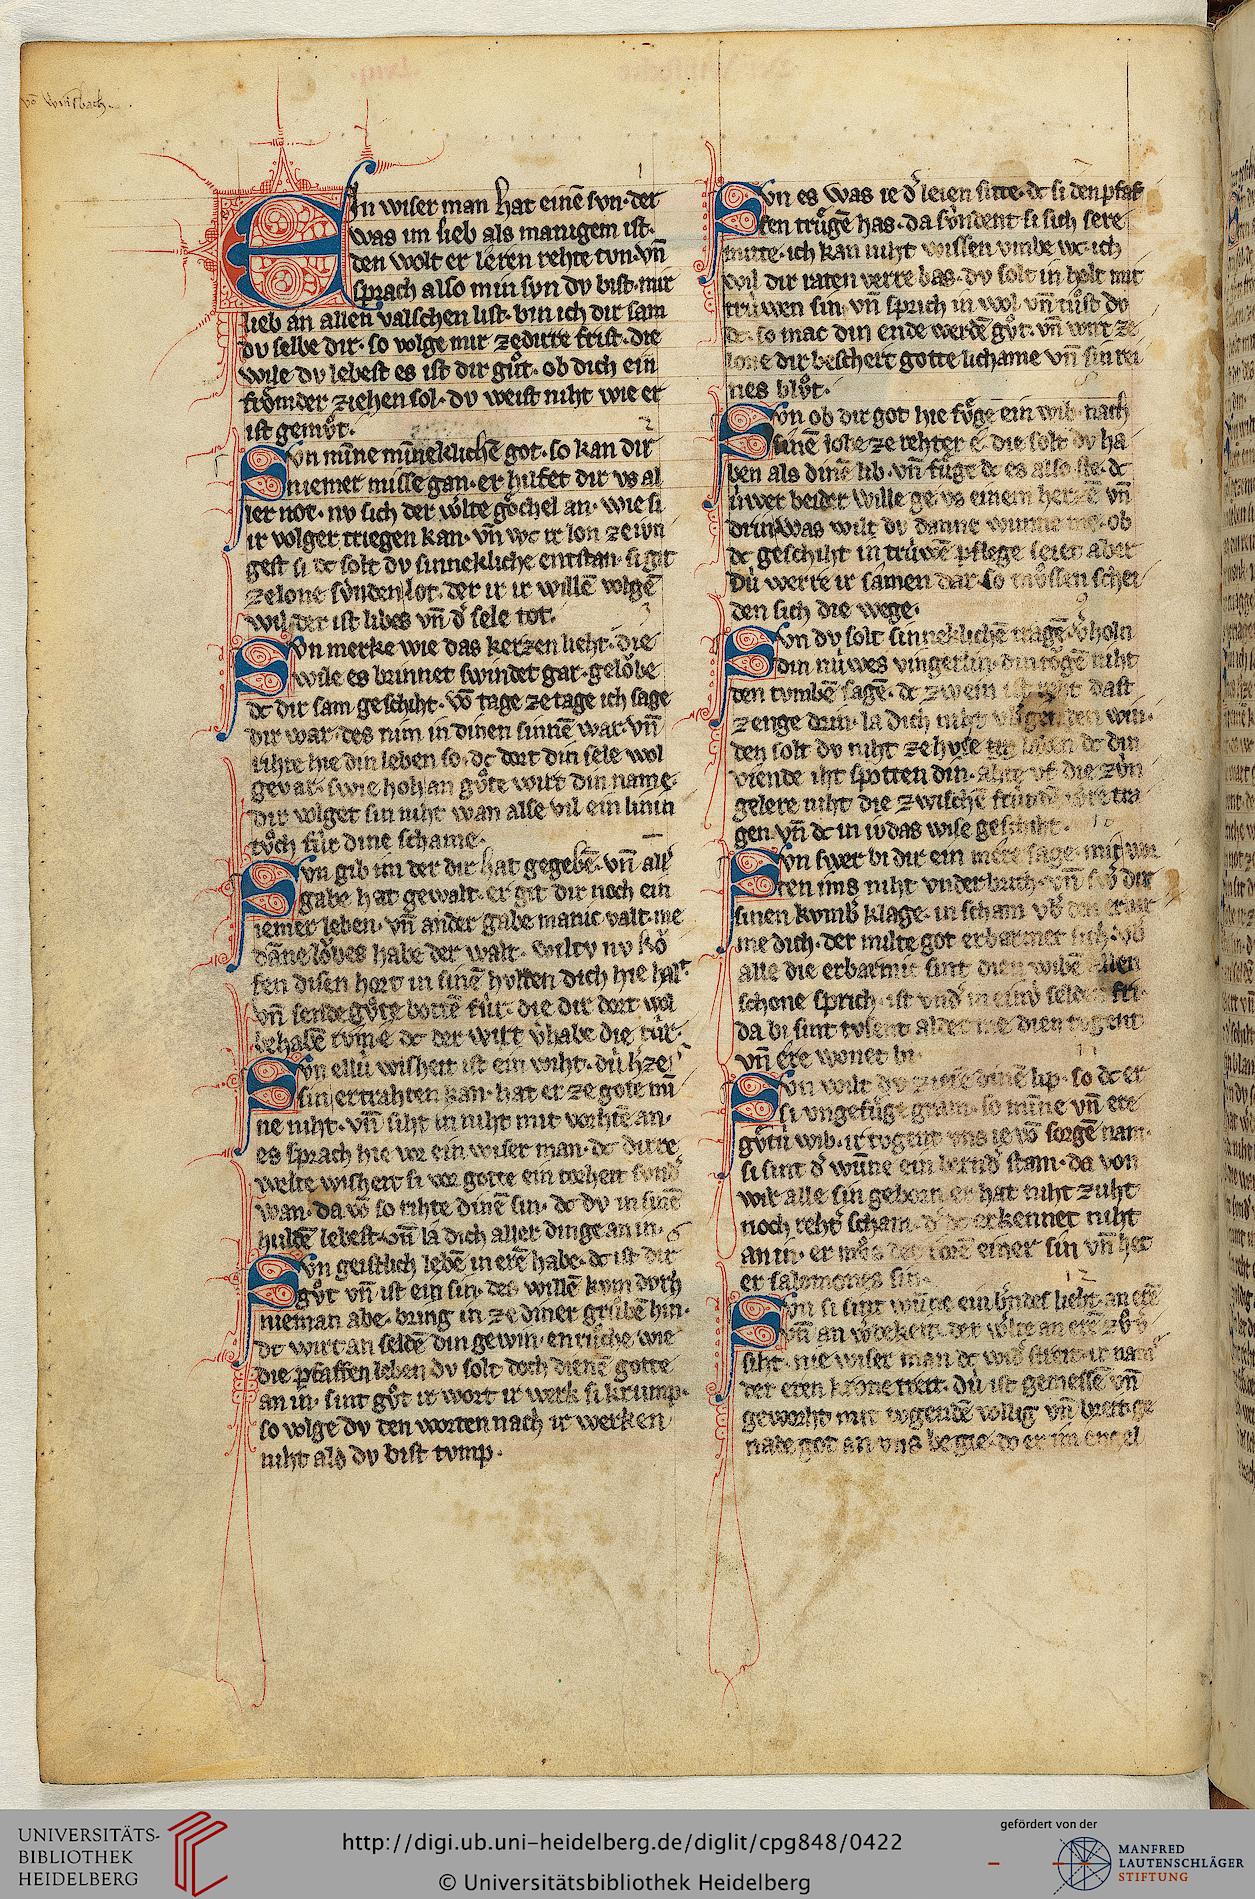 vō winsbach.
1
Ein wiser man hat einē svn· der
was im lieb als manigem ist·
den wolt er leren rehte tvn· vn̄
sprach also min svn dv bist· mir
lieb an allen valschen list· bin ich dir sam
dv selbe dir· so volge mir ze dirre frist· die
wile dv lebest es ist dir gůt· ob dich ein
frömder ziehen sol· dv weist niht wie er
ist gemůt·
2
Svn mīne mīneklichē got· so kan dir
niemer misse gan· er hilfet dir vs al
ler not· nv sich der wͤlte gͦchel an· wie si
ir volger triegen kan· vn̄ wc ir lon ze ivn
gest si dc solt dv sinnekliche entstan· si git
ze lone svnden lot· der ir ir willē volgē
wil der ist libes vn̄ d' sele tot·
3
Svn merke wie das kerzen lieht· die
wile es brinnet swindet gar· gelͦbe
dc dir sam geschiht· vō tage ze tage ich sage
dir war· des nim in dinen sinnē war· vn̄
rihte hie din leben so· dc dort din sele wol
gevar· swie hoh an gůte wirt din name·
dir volget sin niht wan alse vil ein linin
tůch fúr dine schame·
Svn gib im der dir hat gegebē· vn̄ all'
gabe hat gewalt· er git dir noch ein
iemer leben· vn̄ ander gabe manic valt· me
dāne lͦbes habe der walt· wiltv nv kͦ
fen disen hort in sinē hvlden dich hie halt·
vn̄ sende gůte bottē fúr· die dir dort wol
behabē rvm e dc der wirt v'habe die túr·
5
Svn ellú wisheit ist ein wiht· dú h'ze
sin ertrahten kan· hat er ze gote mī
ne niht· vn̄ siht in niht mit vorhtē an·
es sprach hie vor ein wiser man· dc dirre
welte wisheit si vor gotte ein torheit svnd'
wan· da vō so rihte dinē sin· dc dv in sinē
hvldē lebest· vn̄ la dich aller dinge an in·
6
Svn geistlich lebē in erē habe· dc ist dir
gůt vn̄ ist ein sin· des willē kvm dvrh
nieman abe· bring in ze diner grůbē hin·
dc wirt an seldē din gewin· en růche wie
die pfaffen leben dv solt doch dienē gotte
an in· sint gůt ir wort ir werk si krump·
so volge dv den worten nach ir werken
niht ald dv bist tvmp·
7
Svn es was ie d' leien sitte· dc si den pfaf
fen trůgē has· da svndent si sich sere
mitte· ich kan niht wissen vmbe wc· ich
wil dir raten verre bas· dv solt in holt mit
trúwen sin· vn̄ sprich in wol vn̄ tůst dv
dc· so mac din ende werdē gůt· vn̄ wirt ze
lone dir beschert gottes lichame vn̄ sin rei
nes blůt·
8
Svn ob dir got hie fůge ein wib· nach
sinē lobe ze rehter e· die solt dv ha
ben als dinē lib· vn̄ fůge dc es also ste· dc
úwer beider wille ge vs einem herzē vn̄
drin· was wilt dv danne wunne me· ob
dc geschiht in trúwē pflege seiet aber
dú werre ir samen dar· so můssen schei
den sich die wege·
9
Svn dv solt sinneklichē tragē· v'holn
din núwes vingerlin· din tͦgē niht
den tvmbē sagē· dc zwein ist reht dast
ze enge drin· la dich niht vb'gen den win·
den solt dv niht ze hvse laden dc din
viende iht spotten din· alnt vf die zvn
gelere niht die zwischē frúndē
gen vn̄ dc in ivdas wise geschiht·
10
Svn swer bi dir ein mere sage· mit wor
ten ims niht vnderbrich· vn̄ swͦ dir
sinen kvmb' klage· in scham vb' den erbar
me dich· der milte got erbarmet sich· vb'
alle die erbarmic sint dien wibē allen
schone sprich· ist vnd' in einv́ selden fri·
da bi sint tvsent ald' me dien tvgent
vn̄ ere wonet bi·
11
Svn wilt dv zieren dinē lip· so dc er
si vngefůge gram· so mīne vn̄ ere
gůtú wib· ir tvgent vns ie vō sorgē nam·
si sint d' wūne ein bernd' stam· da von
wir alle sin geborn· er hat niht zuht
noch reht' scham· d' dc erkennet niht
an in· er můs der torē einer sin vn̄ het
er salomones sin·
12
Svn si sint wūne ein b'ndes lieht· an erē
vn̄ an w'dekeit· der wͤlte an erē zův'
siht· nie wiser man dc wid' streit· ir nam
der eren krone treit· dú ist gemessē vn̄
geworht mit tvgendē vollig vn̄ breit· ge
nade got an vns begie· do er im engel
UNIVERSITÄTS-
BIBLIOTHEK
HEIDELBERG
http://digi.ub.uni-heidelberg.de/diglit/cpg848/0422
© Universitätsbibliothek Heidelberg
gefördert von der
MANFRED
LAUTENSCHLÄGER
STIFTUNG